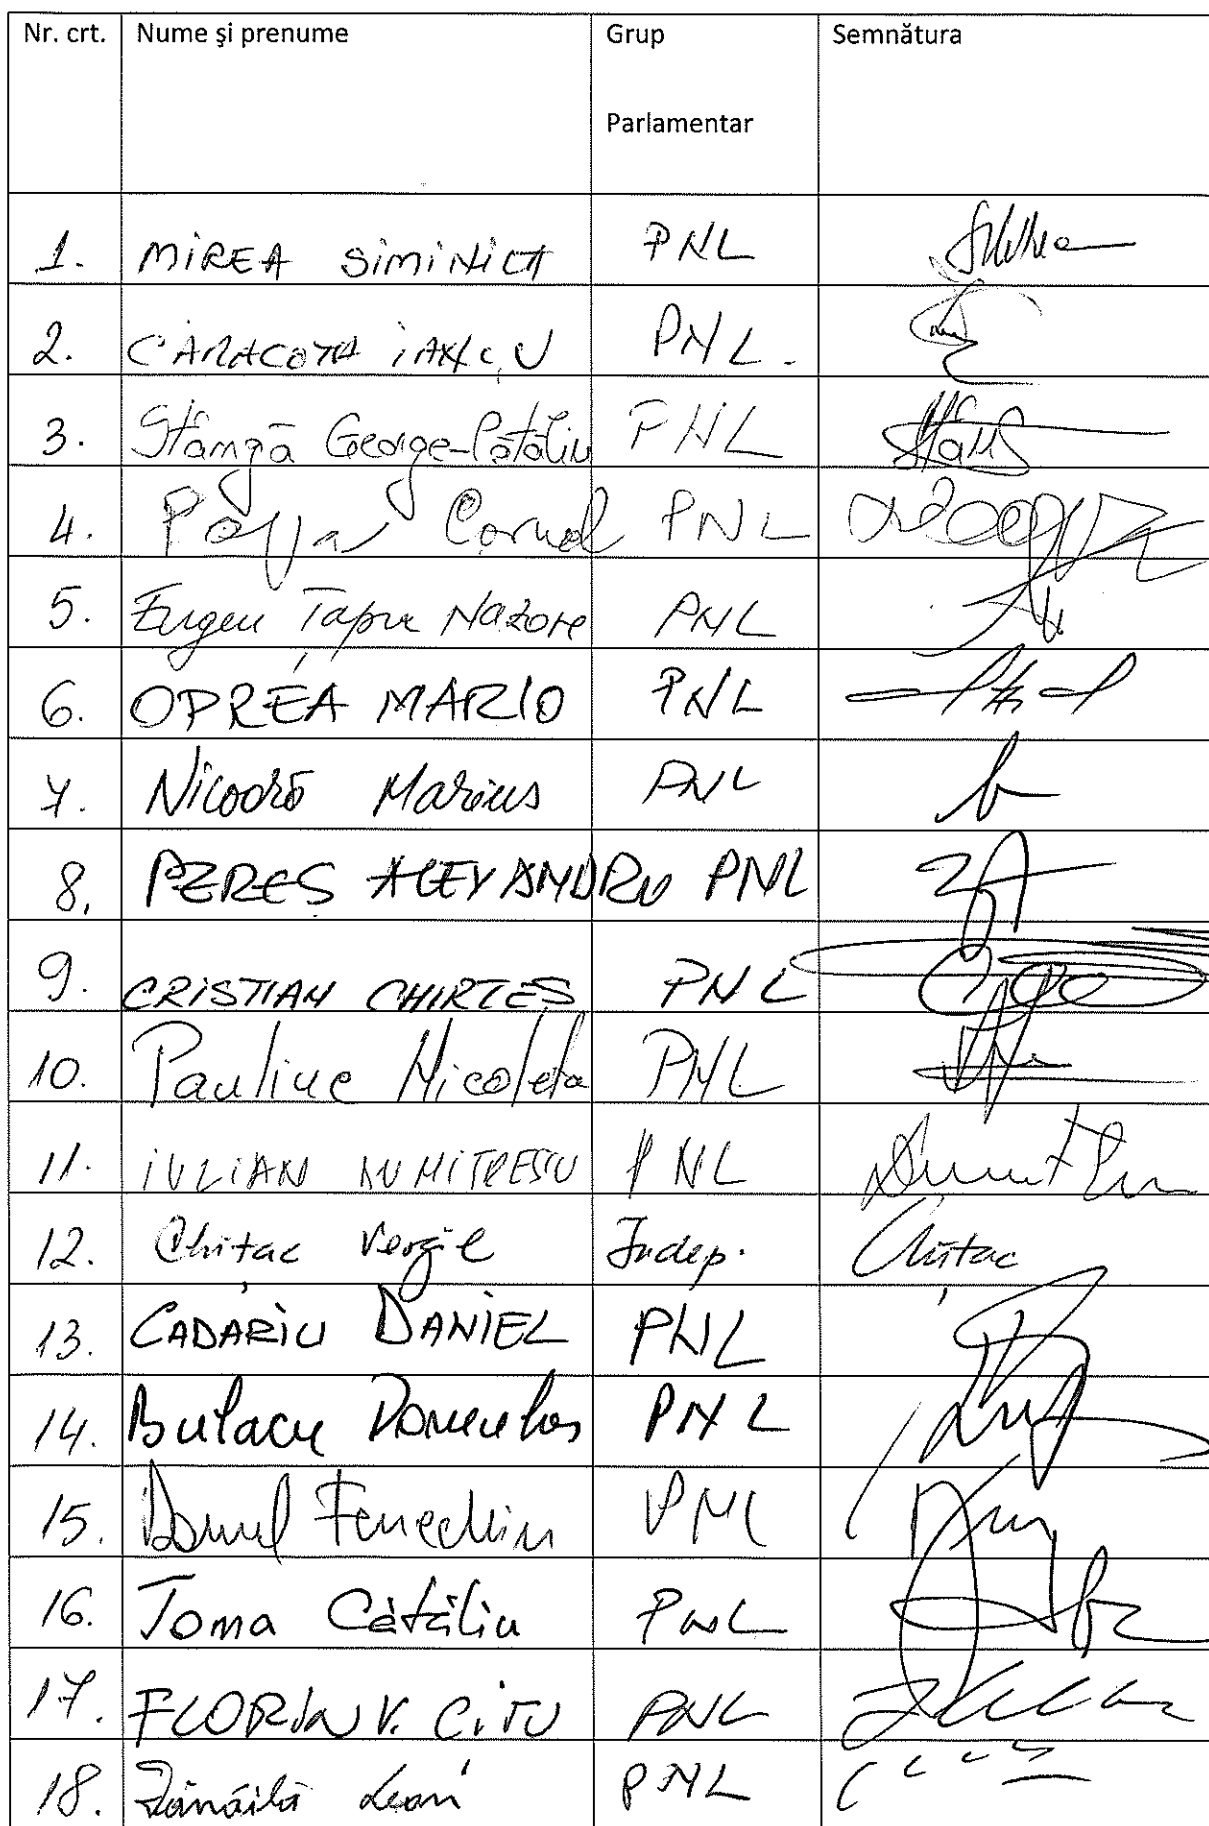 Nr. crt. Nume şi prenume Grup Parlamentar Semnătura
1. MIREA SIMINICA PNL
2. CARACOTA IANCU PNL.
3. Stângă George-Cătălin PNL
4. Popa Cornel PNL
5. Eugen Țapu Nazare PNL
6. OPREA MARIO PNL
7. Nicoară Marius PNL
8. PEREȘ ALEXANDRU PNL
9. CRISTIAN CHIRTEȘ PNL
10. Pauliuc Nicoleta PNL
11. IULIAN DUMITRESCU PNL
12. Chițac Vergil Indep. Chițac
13. CADARIU DANIEL PNL
14. Bulacu PNL
15. Daniel Fenechiu PNL
16. Toma Cătălin PNL
17. FLORIN V. CIȚU PNL
18. Dănăilă Leon PNL